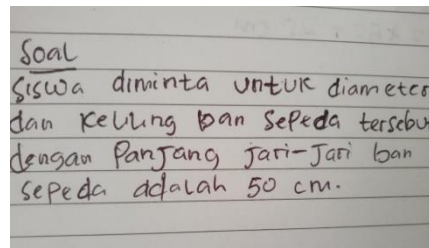 Soal
Siswa diminta untuk diameter
dan keliling ban sepeda tersebu
dengan Panjang jari-jari ban
sepeda adalah 50 cm.